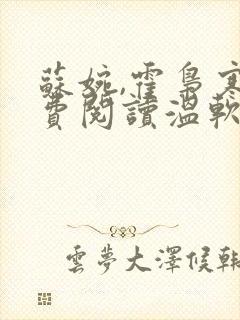 蘇婉,霍梟寒
費閱讀溫軟
雲夢大澤候鞋